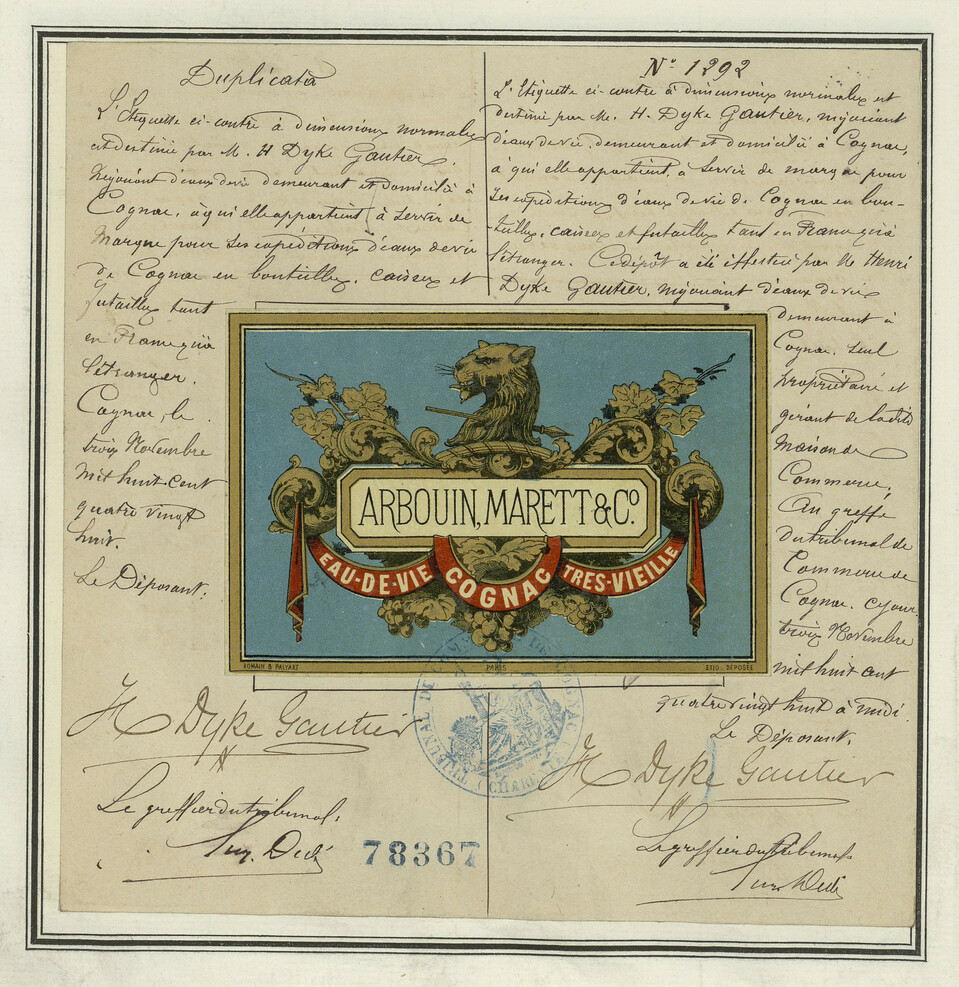 Duplicata
L'Etiquette ci-contre à dimensions normales
est destinée par M. H Dyke Gautier,
Négociant d'eaux de vie demeurant et domicilié à
Cognac, à qui elle appartient, à servir de
Marque pour ses expéditions d'eaux de vie
de Cognac en bouteilles, caisses et
futailles tant
en France qu'à
l'étranger.
Cognac, le
trois Novembre
mil huit cent
quatre vingt
huit.
Le Déposant.
H Dyke Gautier
Le greffier du tribunal:
78367
No 1292
L'Etiquette ci-contre à dimensions normales est
destinée par M. H. Dyke Gautier, négociant
d'eaux de vie, demeurant et domicilié à Cognac,
à qui elle appartient, à servir de marque pour
ses expéditions d'eaux de vie de Cognac en bou-
teilles, caisses et futailles tant en France qu'à
l'étranger. Ce dépôt a été effectué par Mr Henri
Dyke Gautier, négociant d'eaux de vie
demeurant à
Cognac, seul
propriétaire et
gérant de la dite
Maison de
Commerce,
Au greffe
du tribunal de
Commerce de
Cognac, ce jour
trois Novembre
mil huit cent
quatre vingt huit à midi.
Le Déposant.
H Dyke Gautier
Le greffier du tribunal
ARBOUIN, MARETT & Co.
EAU-DE-VIE COGNAC TRES-VIEILLE
ROMAIN & PALYART PARIS ETIQ. DÉPOSÉE
TRIBUNAL DE COGNAC